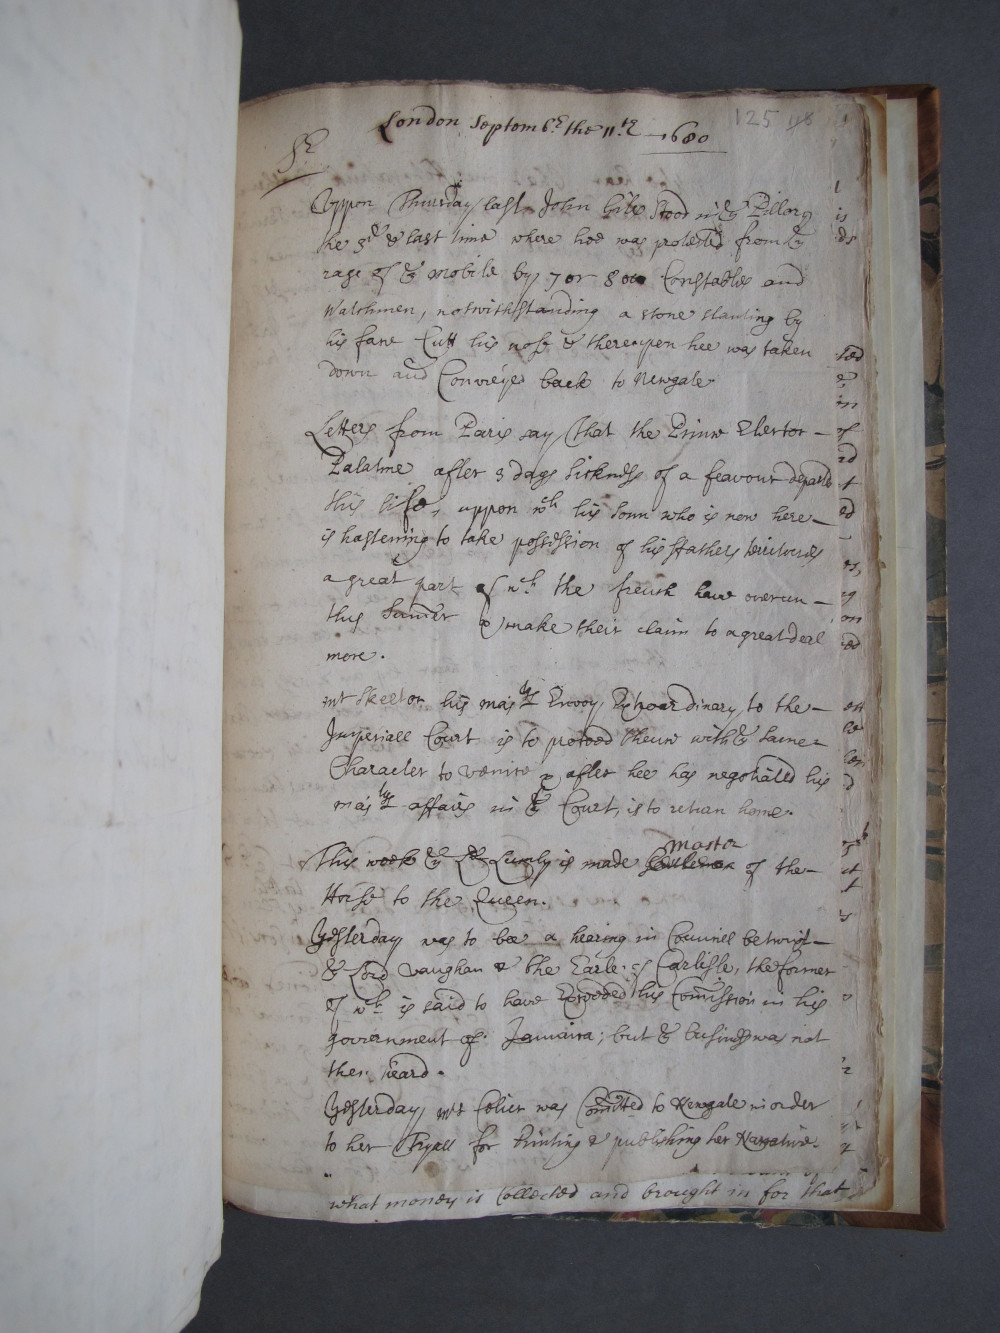 London Septemb.r the 11th 1680
125 118
Sr
Uppon Thursday last John Giles stood in ye Pillory
the 3d & last time where hee was protected from ye
rage of ye Mobile by 7 or 800 Constables and
Watchmen, notwithstanding a stone slanting by
his face Cutt his nose & thereupon hee was taken
down and Conveyed back to Newgate.
Letters from Paris say That the Prince Elector
Palatine after 3 days Sickness of a feavour departed
this life, uppon wch his Sonn who is now here
is hastening to take possession of his ffathers territories
a great part of wch the french have overrun
this Summer & make their claim to a great deal
more.
mr Skelton his majtys Envoy Extraordinary to the
Imperiall Court is to proceed thence with ye same
Character to Venice & after hee has negotiated his
majtys affairs in ye Court is to return home.
This week ye Ld Lumly is made master of the
Horse to the Queen.
Yesterday was to bee a hearing in Councel betwixt
ye Lord Vaughan & the Earle of Carlisle, the former
of wch is said to have Exceeded his Comission in his
government of Jamaica; but ye business was not
then heard.
Yesterday mrs Celier was Comitted to Newgate in order
to her Tryall for Printing & publishing her Narrative.
what money is Collected and brought in for that